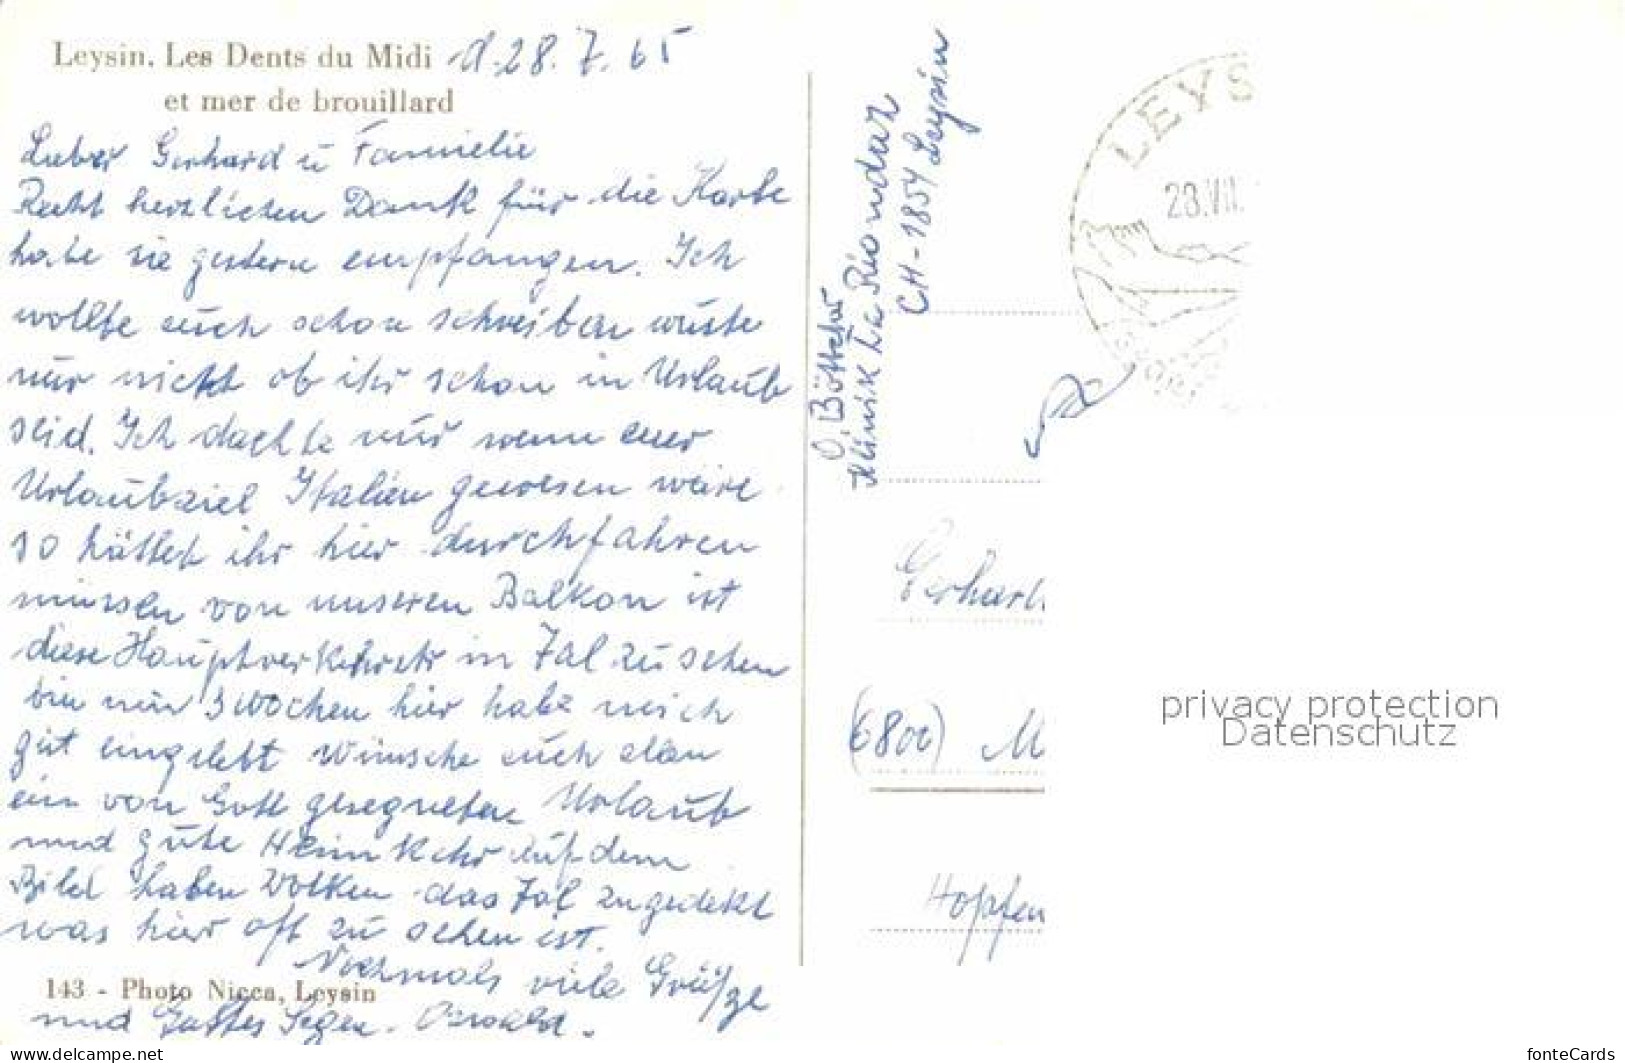 Leysin. Les Dents du Midi
et mer de brouillard
d. 28. 7. 65
Lieber Gerhard u Familie
Recht herzlichen Dank für die Karte
habe sie gestern empfangen. Ich
wollte euch schon schreiben wuste
nur nicht ob ihr schon in Urlaub
seid. Ich dachte nur wenn euer
Urlaubziel Italien gewesen wäre
so hättet ihr hier durchfahren
müssen von unseren Balkon ist
diese Hauptverkehrstr in Tal zu sehen
bin nun 3 Wochen hier habe mich
gut eingelebt Wünsche euch allen
ein von Gott gesegneten Urlaub
und gute Heimkehr auf dem
Bild haben Wolken das Tal zugedekt
was hier oft zu sehen ist.
Nochmals viele Grüße
und Gottes Segen. Oswald.
143 - Photo Nicca, Leysin
O. Böttcher
Klinik La Riondaz
CH-1854 Leysin
LEYS
28.VII.
Gerhard
(6800) M
Hopfen
privacy protection
Datenschutz
www.delcampe.net
fonteCards